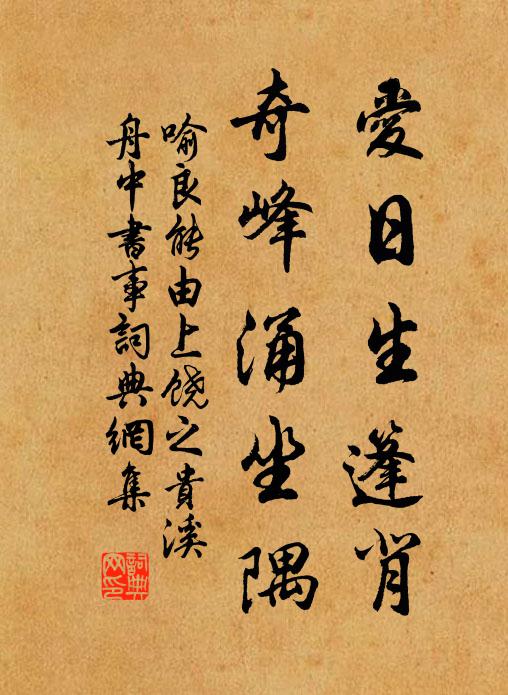 愛日生蓬背
奇峰涌坐隅
喻良能由上饒之貴溪
舟中書事詞典網集
詞典網印